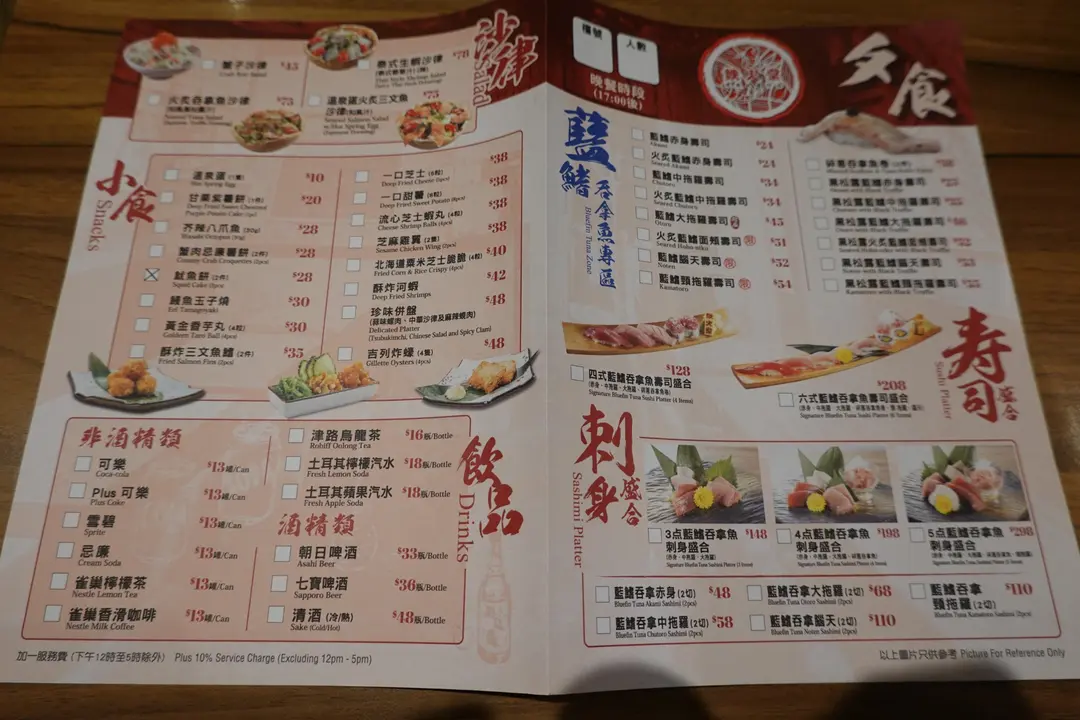 沙律
Salad
蟹子沙律
Crab Roe Salad
$45
泰式生蝦沙律
$78
火炙吞拿魚沙律
$75
Seared Tuna Salad
溫泉蛋火炙三文魚
沙律(和風汁)
$75
Seared Salmon Salad
w/Hot Spring Egg
(Japanese Dressing)
小食
Snacks
溫泉蛋 (1隻)
$10
Hot Spring Egg
甘栗紫薯餅 (1件)
$20
Deep Fried Sweet Chestnut
Purple Potato Cake (1pc)
芥辣八爪魚 (30g)
$28
Wasabi Octopus (30g)
蟹肉忌廉薯餅 (2件)
$28
Creamy Crab Croquettes (2pcs)
魷魚餅 (2件)
$28
Squid Cake (2pcs)
鰻魚玉子燒
$30
Eel Tamagoyaki
黃金香芋丸 (4粒)
$30
Golden Taro Ball (4pcs)
酥炸三文魚鰭 (2件)
$35
Fried Salmon Fins (2pcs)
一口芝士 (6粒)
$38
Deep Fried Cheese (6pcs)
一口甜薯 (8粒)
$38
Deep Fried Sweet Potato (8pcs)
流心芝士蝦丸 (4粒)
$38
Cheese Shrimp Balls (4pcs)
芝麻雞翼 (2隻)
$38
Sesame Chicken Wing (2pcs)
北海道粟米芝士脆脆 (4粒)
$40
Fried Corn & Rice Crispy (4pcs)
酥炸河蝦
$42
Deep Fried Shrimps
珍味併盤
$48
(蒜味螺肉、中華沙律及麻辣蜆肉)
Delicated Platter
(Tsubukimchi, Chinese Salad and Spicy Clam)
吉列炸蠔 (4隻)
$48
Gillette Oysters (4pcs)
飲品
Drinks
非酒精類
可樂
$13罐/Can
Coca-cola
Plus 可樂
$13罐/Can
Plus Coke
雪碧
$13罐/Can
Sprite
忌廉
$13罐/Can
Cream Soda
雀巢檸檬茶
$13罐/Can
Nestle Lemon Tea
雀巢香滑咖啡
$13罐/Can
Nestle Milk Coffee
津路烏龍茶
$16瓶/Bottle
Robiff Oolong Tea
土耳其檸檬汽水
$18瓶/Bottle
Fresh Lemon Soda
土耳其蘋果汽水
$18瓶/Bottle
Fresh Apple Soda
酒精類
朝日啤酒
$33瓶/Bottle
Asahi Beer
七寶啤酒
$36瓶/Bottle
Sapporo Beer
清酒 (冷/熱)
$48瓶/Bottle
Sake (Cold/Hot)
加一服務費 (下午12時至5時除外) Plus 10% Service Charge (Excluding 12pm - 5pm)
檯號
人數
晚餐時段
(17:00後)
夕食
藍鰭
吞拿魚專區
Bluefin Tuna Zone
藍鰭赤身壽司
$24
Akami
火炙藍鰭赤身壽司
$24
Seared Akami
藍鰭中拖羅壽司
$34
Chutoro
火炙藍鰭中拖羅壽司
$34
Seared Chutoro
藍鰭大拖羅壽司
$45
Otoro
火炙藍鰭面頰壽司 限
$51
Seared Hoho-niku
藍鰭腦天壽司 限
$52
Noten
藍鰭頸拖羅壽司 限
$54
Kamatoro
黑松露藍鰭赤身壽司
黑松露藍鰭中拖羅壽司
黑松露藍鰭大拖羅壽司
黑松露火炙藍鰭面頰壽司
黑松露藍鰭腦天壽司
Noten with Black Truffle
黑松露藍鰭頸拖羅壽司
Kamatoro with Black Truffle
寿司
盛合
Sushi Platter
四式藍鰭吞拿魚壽司盛合
$128
Signature Bluefin Tuna Sushi Platter (4 Items)
六式藍鰭吞拿魚壽司盛合
$208
Signature Bluefin Tuna Sushi Platter (6 Items)
刺身
盛合
Sashimi Platter
3点藍鰭吞拿魚
刺身盛合
$148
Signature Bluefin Tuna Sashimi Platter (3 Items)
4点藍鰭吞拿魚
刺身盛合
$198
Signature Bluefin Tuna Sashimi Platter (4 Items)
5点藍鰭吞拿魚
刺身盛合
$298
Signature Bluefin Tuna Sashimi Platter (5 Items)
藍鰭吞拿赤身 (2切)
$48
Bluefin Tuna Akami Sashimi (2pcs)
藍鰭吞拿大拖羅 (2切)
$68
Bluefin Tuna Otoro Sashimi (2pcs)
藍鰭吞拿
頸拖羅 (2切)
$110
Bluefin Tuna Kamatoro Sashimi (2pcs)
藍鰭吞拿中拖羅 (2切)
$58
Bluefin Tuna Chutoro Sashimi (2pcs)
藍鰭吞拿腦天 (2切)
$110
Bluefin Tuna Noten Sashimi (2pcs)
以上圖片只供參考 Picture For Reference Only